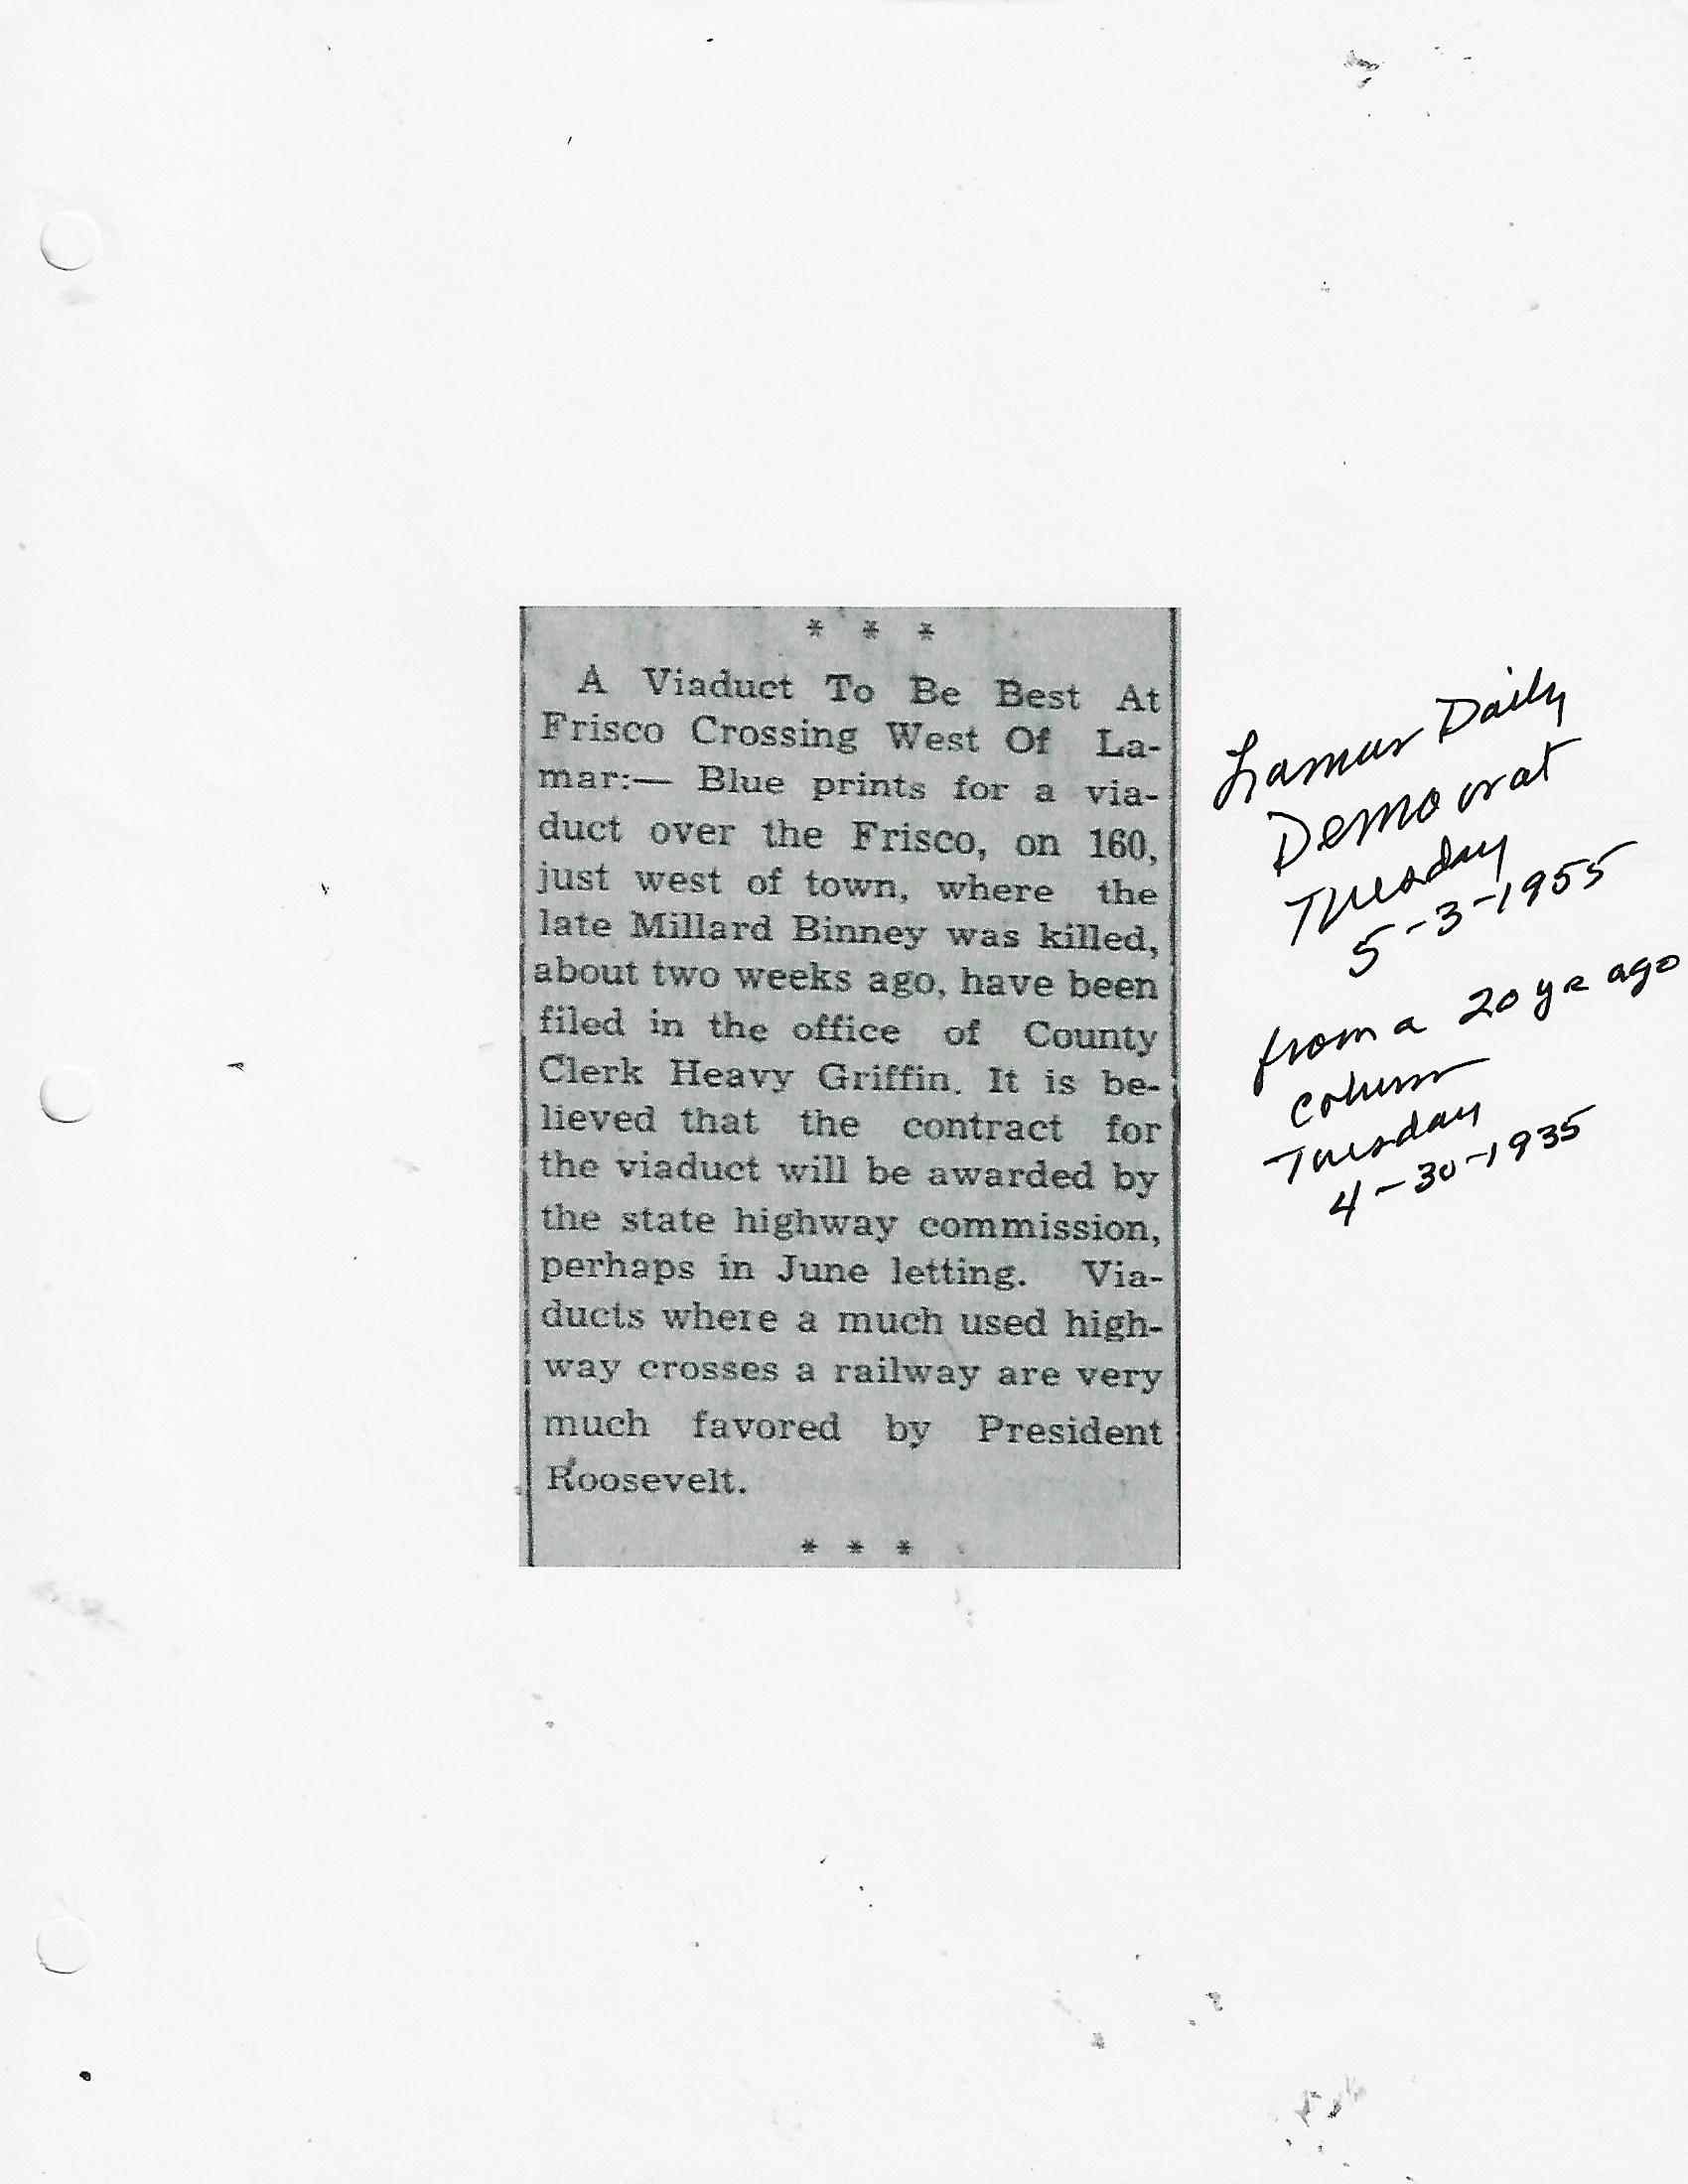 * * *
A Viaduct To Be Best At
Frisco Crossing West Of La-
mar:— Blue prints for a via-
duct over the Frisco, on 160,
just west of town, where the
late Millard Binney was killed,
about two weeks ago, have been
filed in the office of County
Clerk Heavy Griffin. It is be-
lieved that the contract for
the viaduct will be awarded by
the state highway commission,
perhaps in June letting. Via-
ducts where a much used high-
way crosses a railway are very
much favored by President
Roosevelt.
* * *
Lamar Daily
Democrat
Tuesday
5-3-1955
from a 20 yr ago
column
Tuesday
4-30-1935